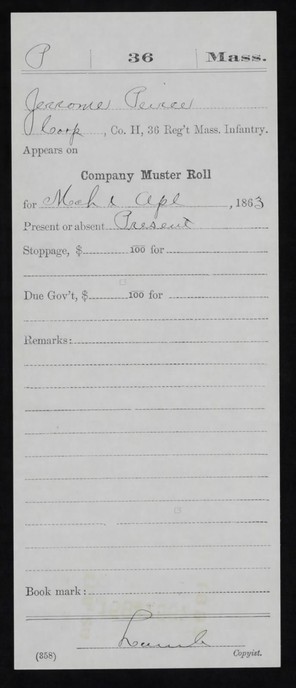 P 36 Mass.
Jerome Peirce
Corp, Co. H, 36 Reg't Mass. Infantry.
Appears on
Company Muster Roll
for Mch & Apl, 1863
Present or absent Present
Stoppage, $ 100 for
Due Gov't, $ 100 for
Remarks:
Book mark:
Lamb
(358) Copyist.